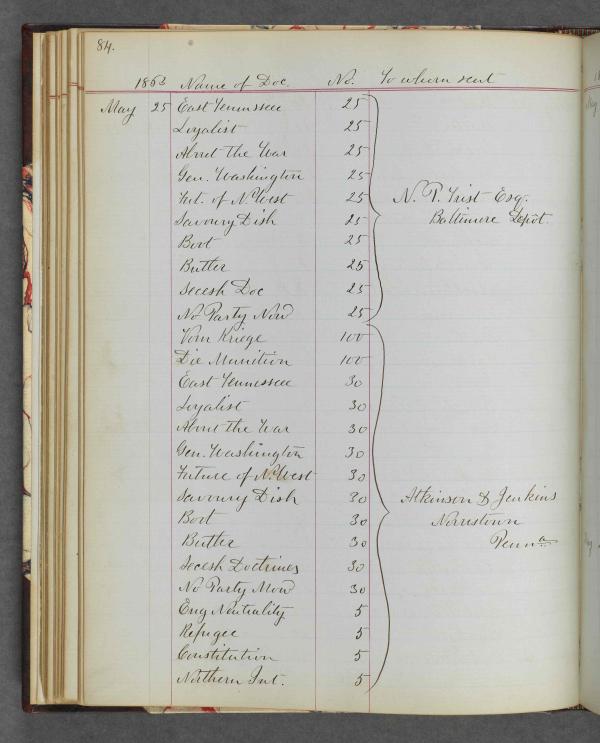 84.
1863 Name of Doc. No. To whom sent
May 25 East Tennessee 25
Loyalist 25
About the War 25
Gen. Washington 25
Fut. of N. West 25
Savoury Dish 25
Bort 25
Butler 25
Secesh Doc 25
No Party Now 25
N. P. Trist Esq.
Baltimore Depôt.
Vom Kriege 100
Die Munition 100
East Tennessee 30
Loyalist 30
About the War 30
Gen. Washington 30
Future of N. West 30
Savoury Dish 30
Bort 30
Butler 30
Secesh Doctrines 30
No Party Now 30
Eng Neutrality 5
Refugee 5
Constitution 5
Northern Int. 5
Atkinson & Jenkins
Norristown
Penna